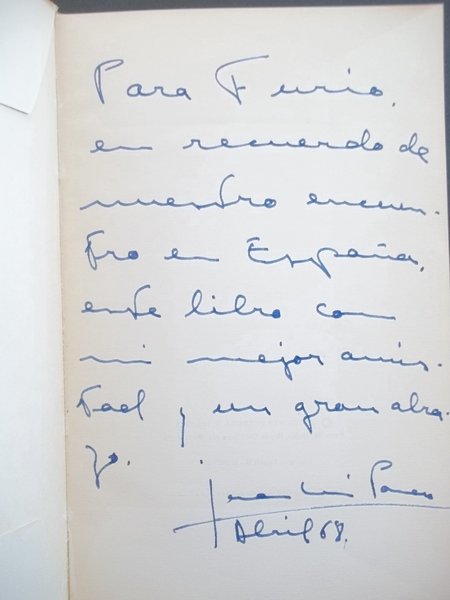 Para Furio,
en recuerdo de
nuestro encuen-
tro en España,
este libro con
mi mejor amis-
tad y un gran abra-
zo.
Juan Luis Panero
Abril 68.